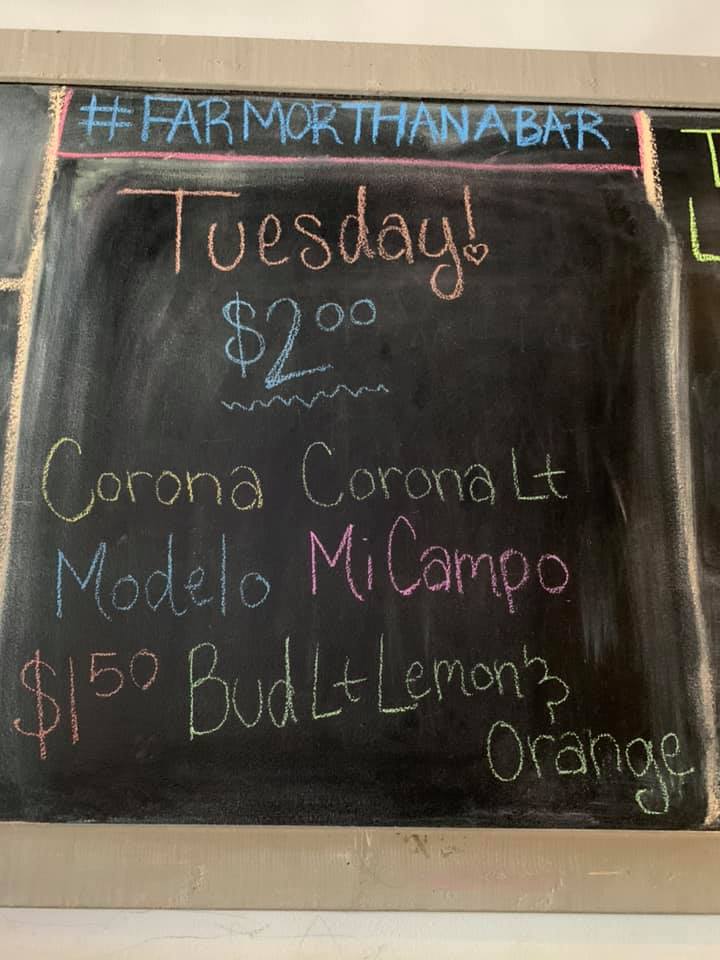 #FARMORTHANABAR
Tuesday!
$2.00
Corona Corona Lt
Modelo Mi Campo
$1.50 Bud Lt Lemon &
Orange
T
L